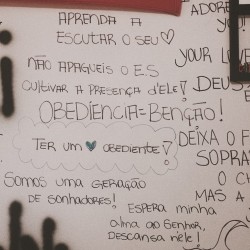 APRENDA A
ESCUTAR O SEU ♡
NÃO APAGUEIS O E.S
CULTIVAR A PRESENÇA d'ELE!
OBEDIENCIA = BENÇÃO!
TER UM ♥ OBEDIENTE!
SOMOS UMA GERAÇÃO
DE SONHADORES!
ESPERA minha
alma ao Senhor,
DESCANSA nele!
ADORE
YOUR LOVE
DEUS
DEIXA O F
SOPRA
O CH
MAS A